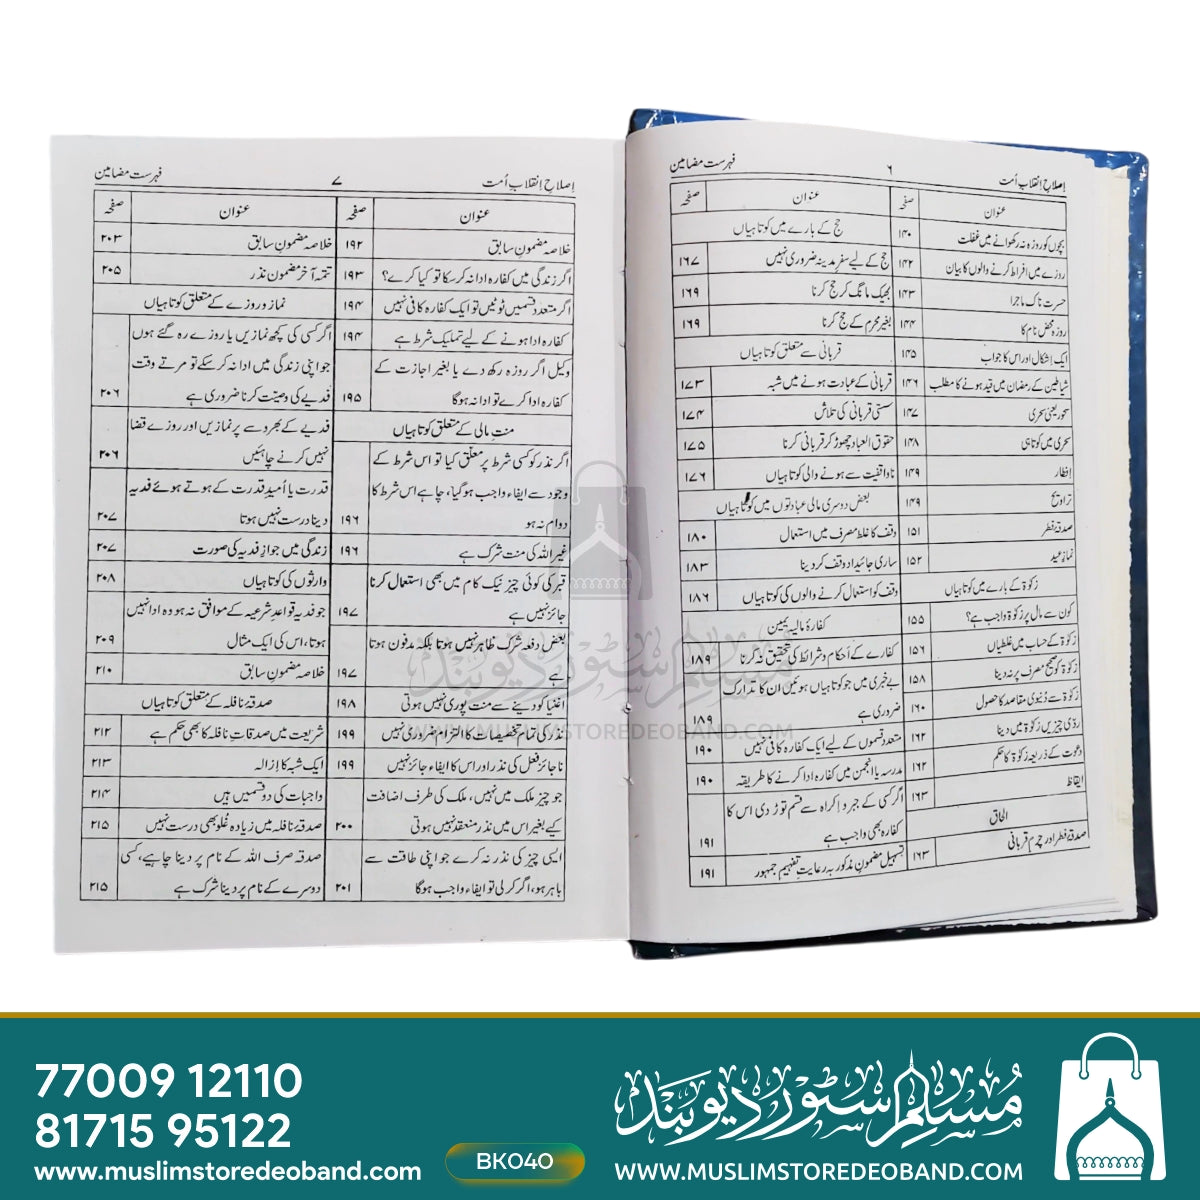 اِصلاحِ اِنقلاب اُمت
۶
فہرست مضامین
عنوان
صفحہ
بچوں کو روزہ نہ رکھوانے میں غفلت
۱۴۰
روزے میں افراط کرنے والوں کا بیان
۱۴۲
حسرت ناک ماجرا
۱۴۳
روزہ محض نام کا
۱۴۴
ایک اِشکال اور اس کا جواب
۱۴۵
شیاطین کے رمضان میں قید ہونے کا مطلب
۱۴۶
سحور یعنی سحری
۱۴۷
سحری میں کوتاہی
۱۴۸
اِفطار
۱۴۹
تراویح
۱۴۹
صدقۂ فطر
۱۵۱
نمازِ عید
۱۵۲
زکوٰۃ کے بارے میں کوتاہیاں
کون سے مال پر زکوٰۃ واجب ہے؟
۱۵۵
زکوٰۃ کے حساب میں غلطیاں
۱۵۶
زکوٰۃ کو صحیح مصرف پر نہ دینا
۱۵۸
زکوٰۃ سے دُنیوی مقاصد کا حصول
۱۶۰
ردّی چیزیں زکوٰۃ میں دینا
۱۶۲
دعوت کے ذریعہ زکوٰۃ کا حکم
۱۶۲
ایقاظ
۱۶۳
الحاق
صدقۂ فطر اور چرمِ قربانی
۱۶۳
عنوان
صفحہ
حج کے بارے میں کوتاہیاں
حج کے لیے سفرِ مدینہ ضروری نہیں
۱۶۷
بھیک مانگ کر حج کرنا
۱۶۹
بغیر محرم کے حج کرنا
۱۶۹
قربانی سے متعلق کوتاہیاں
قربانی کے عبادت ہونے میں شبہ
۱۷۳
سستی قربانی کی تلاش
۱۷۴
حقوق العباد چھوڑ کر قربانی کرنا
۱۷۵
ناواقفیت سے ہونے والی کوتاہیاں
۱۷۶
بعض دوسری مالی عبادتوں میں کوتاہیاں
وقف کا غلط مصرف میں استعمال
۱۸۰
ساری جائیداد وقف کردینا
۱۸۳
وقف کو استعمال کرنے والوں کی کوتاہیاں
۱۸۶
کفارۂ مالیہ یمین
کفارے کے اَحکام و شرائط کی تحقیق نہ کرنا
۱۸۹
بے خبری میں جو کوتاہیاں ہوئیں ان کا تدارک
ضروری ہے
۱۸۹
متعدد قسموں کے لیے ایک کفارہ کافی نہیں
۱۹۰
مدرسہ یا انجمن میں کفارہ ادا کرنے کا طریقہ
۱۹۰
اگر کسی کے جبر و اِکراہ سے قسم توڑ دی اس کا
کفارہ بھی واجب ہے
۱۹۱
تسہیل مضمون مذکور بہ رعایتِ تفہیم جمہور
۱۹۱
اِصلاحِ اِنقلاب اُمت
۷
فہرست مضامین
عنوان
صفحہ
خلاصہ مضمونِ سابق
۱۹۲
اگر زندگی میں کفارہ ادا نہ کرسکا تو کیا کرے؟
۱۹۳
اگر متعدد قسمیں ٹوٹیں تو ایک کفارہ کافی نہیں
۱۹۴
کفارہ ادا ہونے کے لیے تملیک شرط ہے
۱۹۴
وکیل اگر روزہ رکھ دے یا بغیر اجازت کے
کفارہ ادا کرے تو ادا نہ ہوگا
۱۹۵
منتِ مالی کے متعلق کوتاہیاں
اگر نذر کو کسی شرط پر معلّق کیا تو اس شرط کے
وجود سے ایفاء واجب ہوگیا، چاہے اس شرط کا
دوام نہ ہو
۱۹۶
غیر اللہ کی منت شرک ہے
۱۹۶
قبر کی کوئی چیز نیک کام میں بھی استعمال کرنا
جائز نہیں ہے
۱۹۷
بعض دفعہ شرک ظاہر نہیں ہوتا بلکہ مدفون ہوتا
ہے
۱۹۷
اغنیا کو دینے سے منت پوری نہیں ہوتی
۱۹۸
نذر کی تمام تخصیصات کا التزام ضروری نہیں
۱۹۹
ناجائز فعل کی نذر اور اس کا ایفاء جائز نہیں
۱۹۹
جو چیز ملک میں نہیں، ملک کی طرف اضافت
کیے بغیر اس میں نذر منعقد نہیں ہوتی
۲۰۰
ایسی چیز کی نذر نہ کرے جو اپنی طاقت سے
باہر ہو، اگر کرلی تو ایفاء واجب ہوگا
۲۰۱
عنوان
صفحہ
خلاصہ مضمونِ سابق
۲۰۳
تتمہ آخر مضمون نذر
۲۰۵
نماز و روزے کے متعلق کوتاہیاں
اگر کسی کی کچھ نمازیں یا روزے رہ گئے ہوں
جو اپنی زندگی میں ادا نہ کرسکے تو مرتے وقت
فدیے کی وصیّت کرنا ضروری ہے
۲۰۶
فدیے کے بھروسے پر نمازیں اور روزے قضا
نہیں کرنے چاہئیں
۲۰۶
قدرت یا اُمیدِ قدرت کے ہوتے ہوئے فدیہ
دینا درست نہیں ہوتا
۲۰۷
زندگی میں جوازِ فدیہ کی صورت
۲۰۷
وارثوں کی کوتاہیاں
۲۰۸
جو فدیہ قواعدِ شرعیہ کے موافق نہ ہو وہ ادا نہیں
ہوتا، اس کی ایک مثال
۲۰۹
خلاصہ مضمونِ سابق
۲۱۰
صدقۂ نافلہ کے متعلق کوتاہیاں
شریعت میں صدقاتِ نافلہ کا بھی حکم ہے
۲۱۲
ایک شبہ کا اِزالہ
۲۱۳
واجبات کی دو قسمیں ہیں
۲۱۴
صدقۂ نافلہ میں زیادہ غُلو بھی درست نہیں
۲۱۵
صدقہ صرف اللہ کے نام پر دینا چاہیے، کسی
دوسرے کے نام پر دینا شرک ہے
۲۱۵
مسلم سٹور دیوبند
WWW.MUSLIMSTOREDEOBAND.COM
77009 12110
81715 95122
www.muslimstoredeoband.com
BK040
مسلم سٹور دیوبند
WWW.MUSLIMSTOREDEOBAND.COM